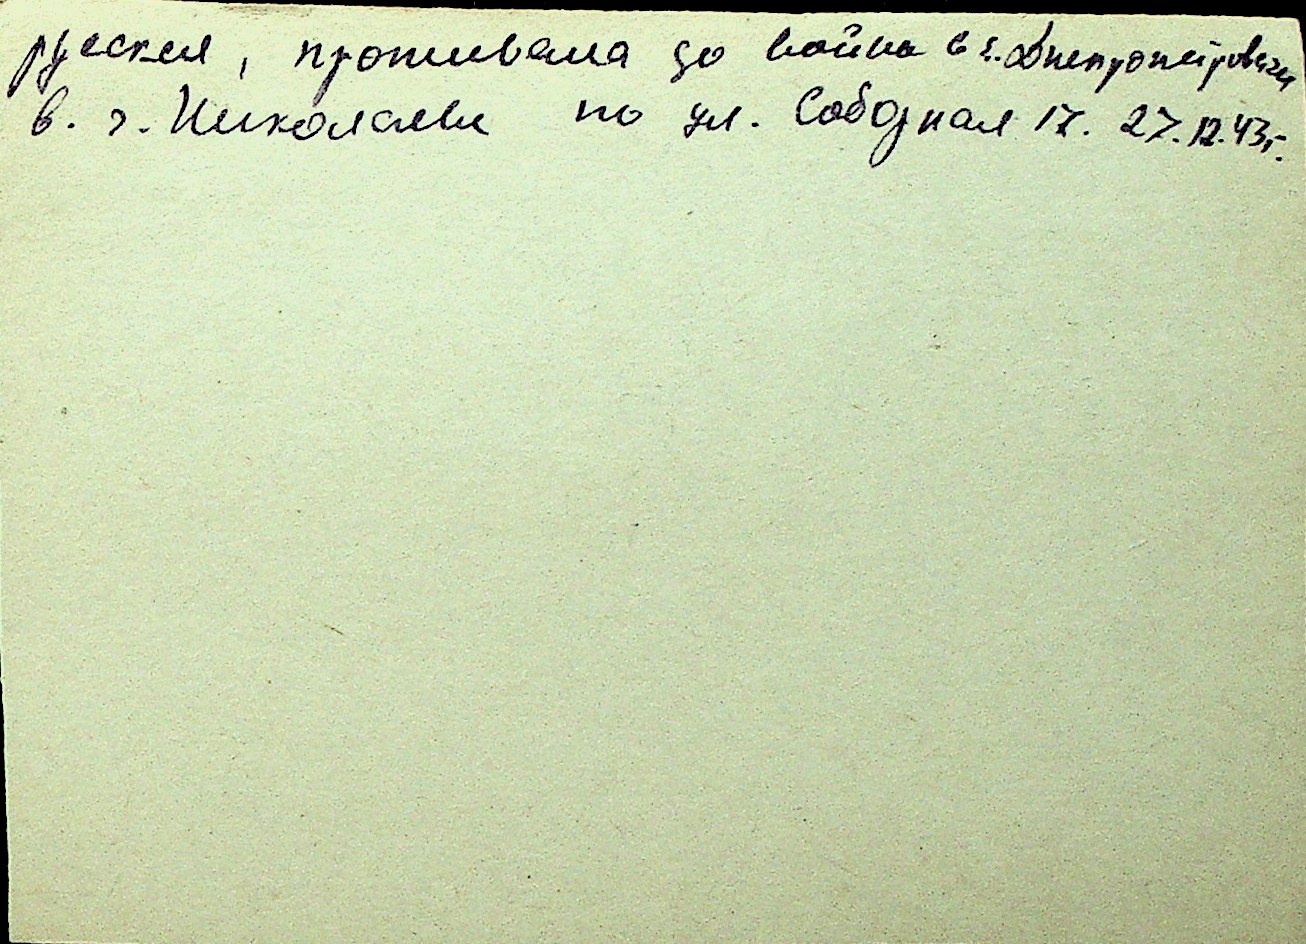 русская, проживала до войны в г. Днепропетровске
в. г. Николаеве по ул. Соборная 17. 27.12.43г.